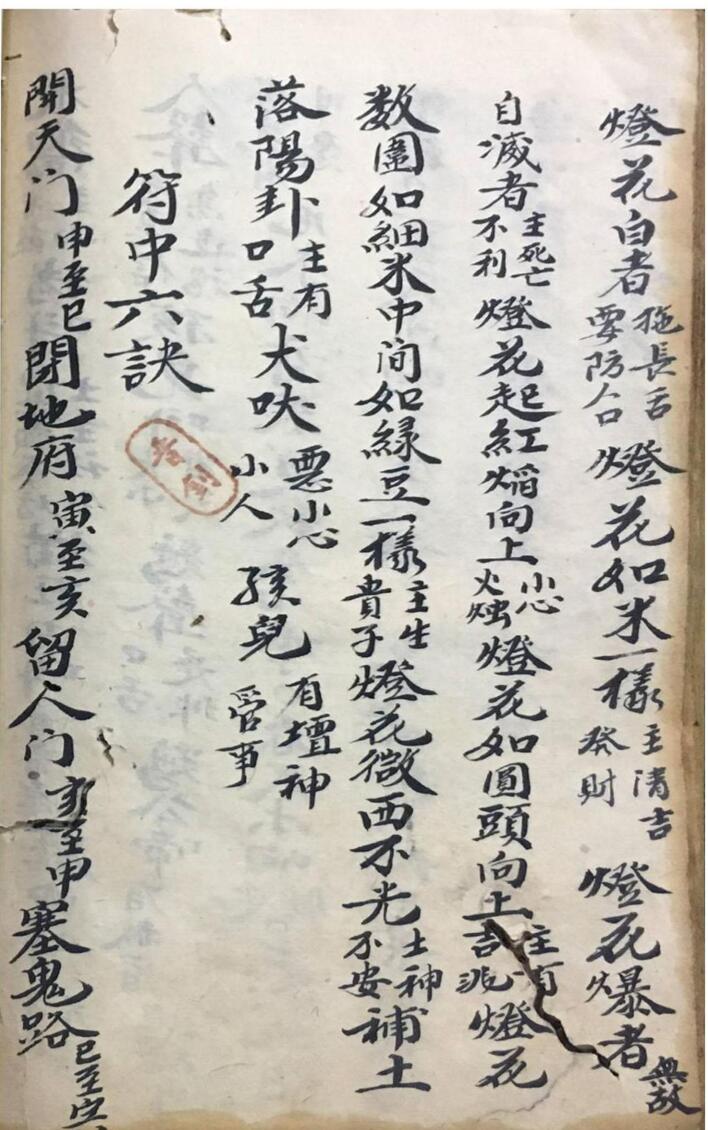 燈花白者拖長舌要防口燈花如米一樣主清吉發財燈花爆者無故
自滅者主死亡不利燈花起紅焰向上小心火燭燈花如圓頭向上主有吉兆燈花
数圍如細米中间如緑豆一樣主生貴子燈花微西不光土神不安補土
落陽卦主有口舌犬吠惡小心小人孩兒有壇神管事
符中六訣
開天门申至巳閉地府寅至亥留人门亥至申塞鬼路巳至寅